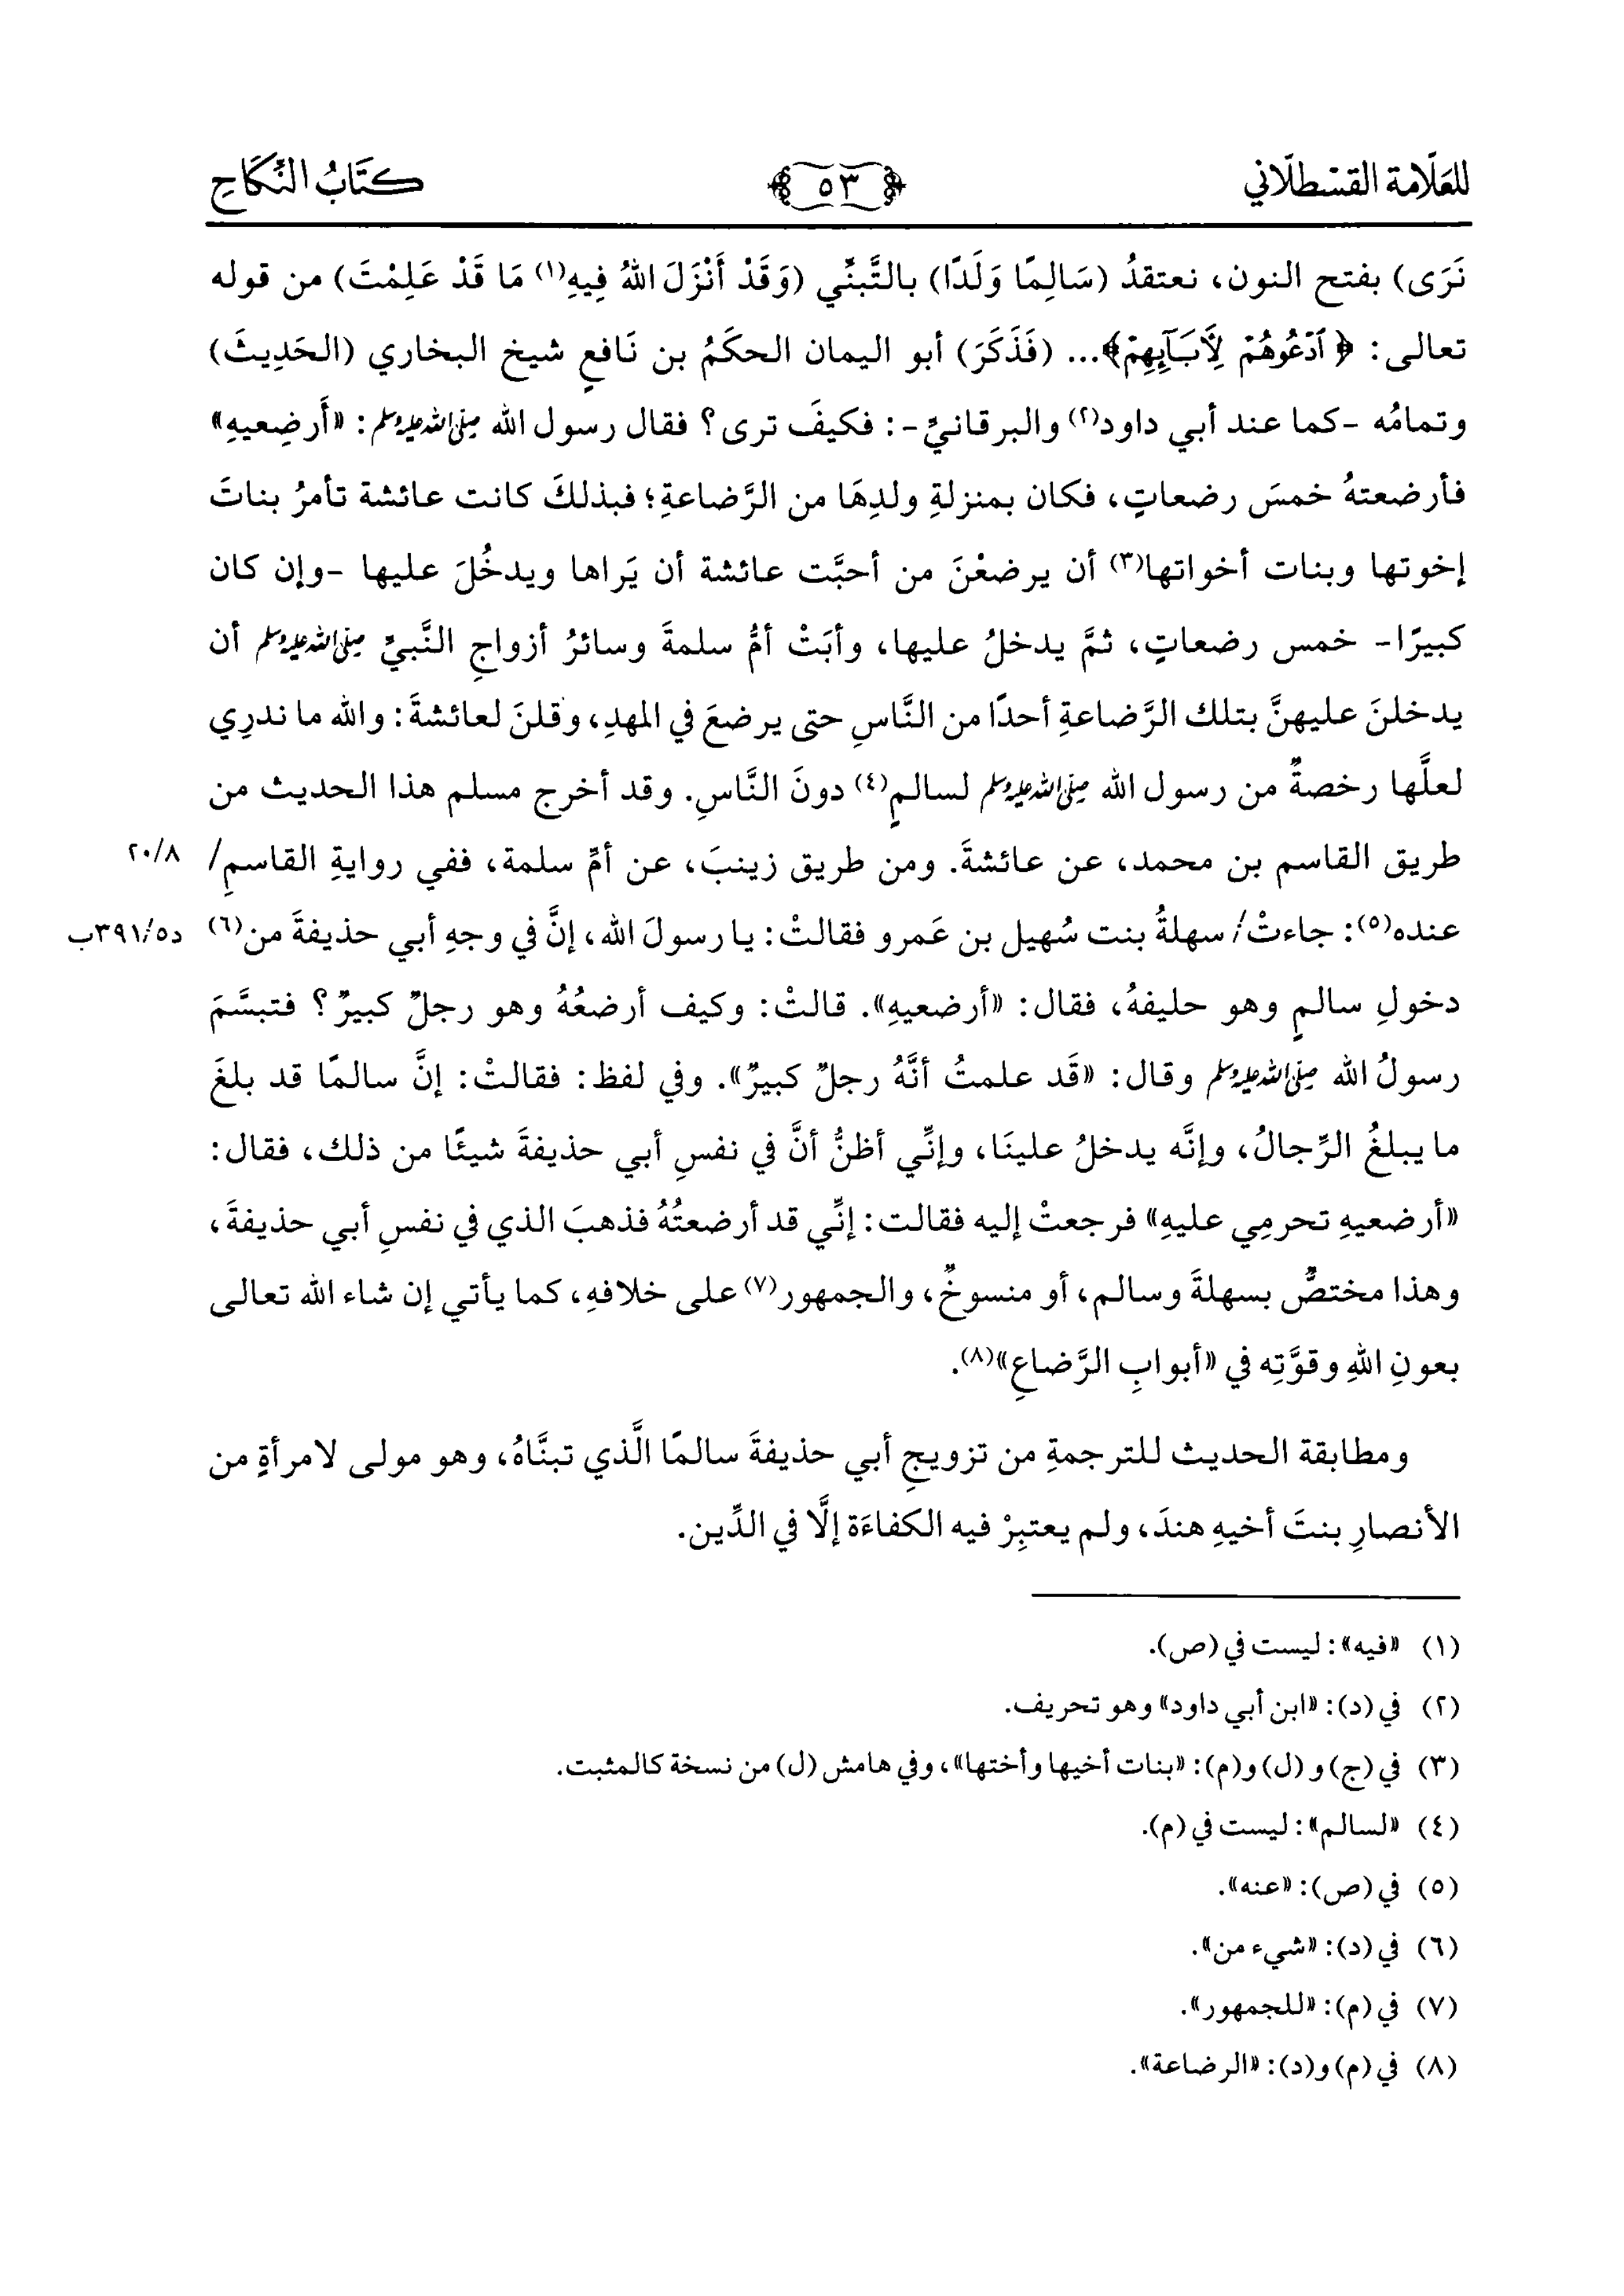 للعلّامة القسطلّاني ٥٣ كتَابُ النِّكَاحِ
نَرَى) بفتح النون، نعتقدُ (سَالِمًا وَلَدًا) بالتَّبنِّي (وَقَدْ أَنْزَلَ اللهُ فِيهِ(١) مَا قَدْ عَلِمْتَ) من قوله
تعالى: ﴿ٱدْعُوهُمْ لِأَبَآئِهِمْ﴾... (فَذَكَرَ) أبو اليمان الحكَمُ بن نَافعٍ شيخ البخاري (الحَدِيثَ)
وتمامُه -كما عند أبي داود(٢) والبرقانيِّ-: فكيفَ ترى؟ فقال رسول الله ﷺ: «أَرضِعيهِ»
فأرضعتهُ خمسَ رضعاتٍ، فكان بمنزلةِ ولدِهَا من الرَّضاعةِ؛ فبذلكَ كانت عائشة تأمرُ بناتَ
إخوتها وبنات أخواتها(٣) أن يرضعْنَ من أحبَّت عائشة أن يَراها ويدخُلَ عليها -وإن كان
كبيرًا- خمس رضعاتٍ، ثمَّ يدخلُ عليها، وأبَتْ أمُّ سلمةَ وسائرُ أزواجِ النَّبيِّ ﷺ أن
يدخلنَ عليهنَّ بتلك الرَّضاعةِ أحدًا من النَّاسِ حتى يرضعَ في المهدِ، وقلنَ لعائشةَ: والله ما ندرِي
لعلَّها رخصةٌ من رسول الله ﷺ لسالمٍ(٤) دونَ النَّاسِ. وقد أخرج مسلم هذا الحديث من
طريق القاسم بن محمد، عن عائشةَ. ومن طريق زينبَ، عن أمِّ سلمة، ففي روايةِ القاسمِ/ ٢٠/٨
عنده(٥): جاءتْ/ سهلةُ بنت سُهيل بن عَمرو فقالتْ: يا رسولَ الله، إنَّ في وجهِ أبي حذيفةَ من(٦) د٣٩١/٥ب
دخولِ سالمٍ وهو حليفهُ، فقال: «أرضعيهِ». قالتْ: وكيف أرضعُهُ وهو رجلٌ كبيرٌ؟ فتبسَّمَ
رسولُ الله ﷺ وقال: «قَد علمتُ أنَّهُ رجلٌ كبيرٌ». وفي لفظ: فقالتْ: إنَّ سالمًا قد بلغَ
ما يبلغُ الرِّجالُ، وإنَّه يدخلُ علينَا، وإنِّي أظنُّ أنَّ في نفسِ أبي حذيفةَ شيئًا من ذلك، فقال:
«أرضعيهِ تحرمِي عليهِ» فرجعتْ إليه فقالت: إنِّي قد أرضعتُهُ فذهبَ الذي في نفسِ أبي حذيفةَ،
وهذا مختصٌّ بسهلةَ وسالم، أو منسوخٌ، والجمهور(٧) على خلافهِ، كما يأتي إن شاء الله تعالى
بعونِ اللهِ وقوَّتِه في «أبوابِ الرَّضاعِ»(٨).
ومطابقة الحديث للترجمةِ من تزويجِ أبي حذيفةَ سالمًا الَّذي تبنَّاهُ، وهو مولى لامرأةٍ من
الأنصارِ بنتَ أخيهِ هندَ، ولم يعتبِرْ فيه الكفاءَة إلَّا في الدِّين.
(١) «فيه»: ليست في (ص).
(٢) في (د): «ابن أبي داود» وهو تحريف.
(٣) في (ج) و(ل) و(م): «بنات أخيها وأختها»، وفي هامش (ل) من نسخة كالمثبت.
(٤) «لسالم»: ليست في (م).
(٥) في (ص): «عنه».
(٦) في (د): «شيء من».
(٧) في (م): «للجمهور».
(٨) في (م) و(د): «الرضاعة».